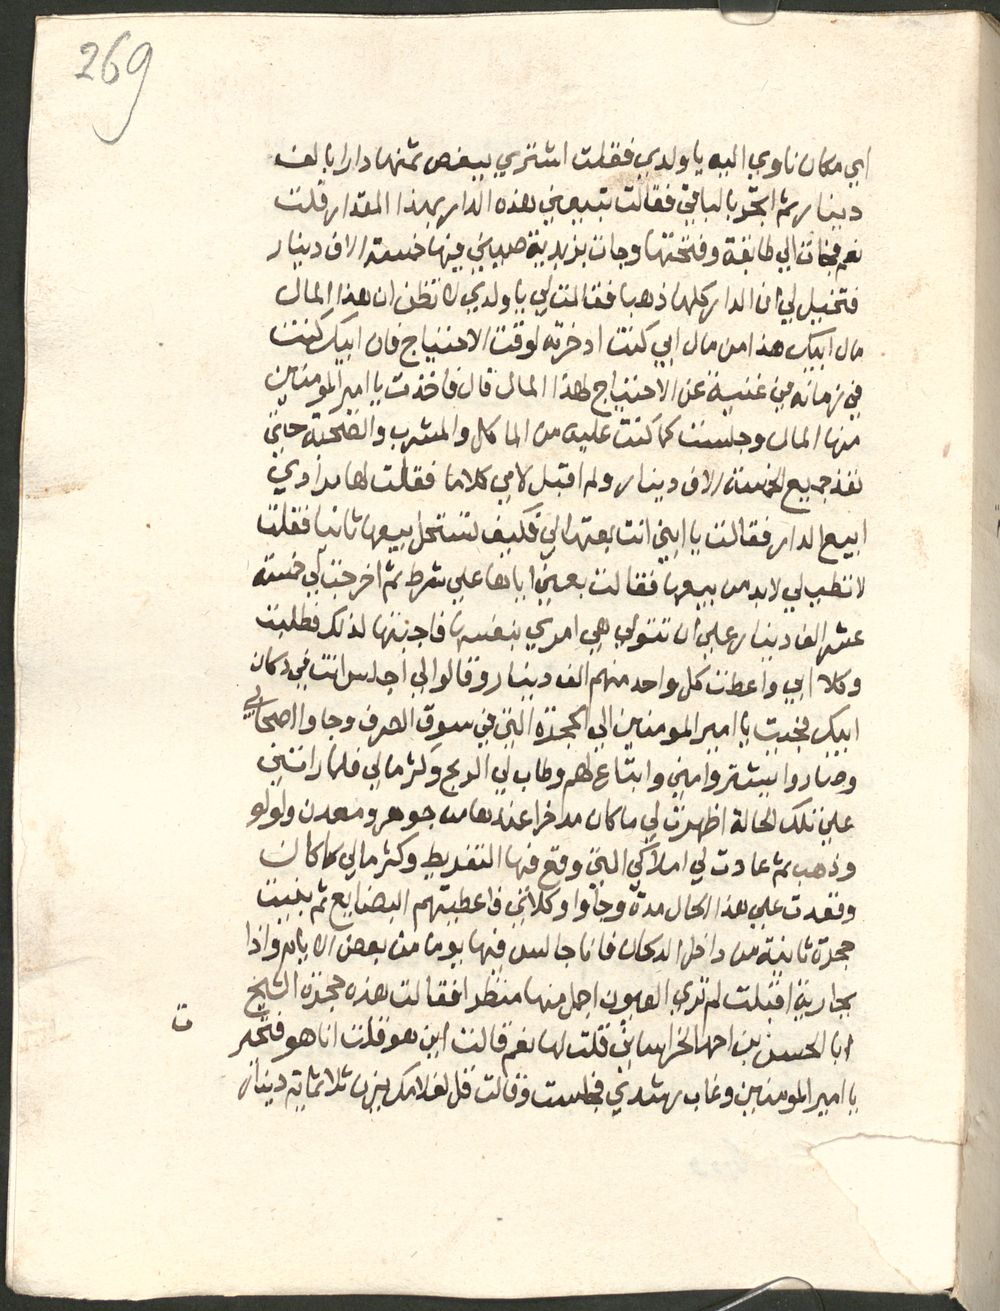 269
اي مكان ناوي اليه يا ولدي فقلت اشتري ببعض ثمنها دارا بالف
دينار ثم اتجر بالباقي فقالت تبيعني هذه الدار بهذا المقدار قلت
نعم فجات الي طابقة وفتحتها وجات بزبدية صيني فيها خمسة الاف دينار
فتخيل لي ان الدار كلها ذهبا فقالت لي يا ولدي لا تظن ان هذا المال
مال ابيك هذا من مال ابي كنت ادخرته لوقت الاحتياج فان ابيك كنت
في زمانه في غنية عن الاحتياج لهذا المال قال فاخذت يا امير المومنين
منها المال وجلست كما كنت عليه من الماكل والمشرب والصحبة حتي
نفذ جميع الخمسة الاف دينار ولم اقبل لامي كلاما فقلت لها مرادي
ابيع الدار فقالت يا ابني انت بعتها لي فكيف تستحل بيعها ثانيا فقلت
لا تطيب لي لابد من بيعها فقالت بعني اياها علي شرط ثم اخرجت لي خمسة
عشر الف دينار علي ان تتولي هي امري بنفسها فاجبتها لذلك فطلبت
وكلا ابي واعطت كل واحد منهم الف دينار وقالوا لي اجلس انت في دكان
ابيك فجيت يا امير المومنين الي الحجرة التي في سوق الصرف وجاوا اصحابي
وصاروا يشتروا مني وابتاع لهم وطاب لي الربح وكثر مالي فلما راتني
علي تلك الحالة اظهرت لي ما كان مدخرا عندها من جوهر ومعدن ولولو
وذهب ثم عادت لي املاكي التي وقع فيها التفريط وكثر مالي كما كان
وقعدت علي هذا الحال مدة وجاوا وكلائي فاعطيتهم البضايع ثم بنيت
حجرة ثانية من داخل الدكان فانا جالس فيها يوما من بعض الايام واذا
بجارية اقبلت لم تري العيون اجمل منها منظرا فقالت هذه حجرة الشيخ
ابا الحسن بن احمد الخراساني قلت لها نعم قالت اين هو قلت انا هو فتحير
ت
يا امير المومنين وغاب رشدي فجلست وقالت قل لغلامك يزن ثلاثماية دينار